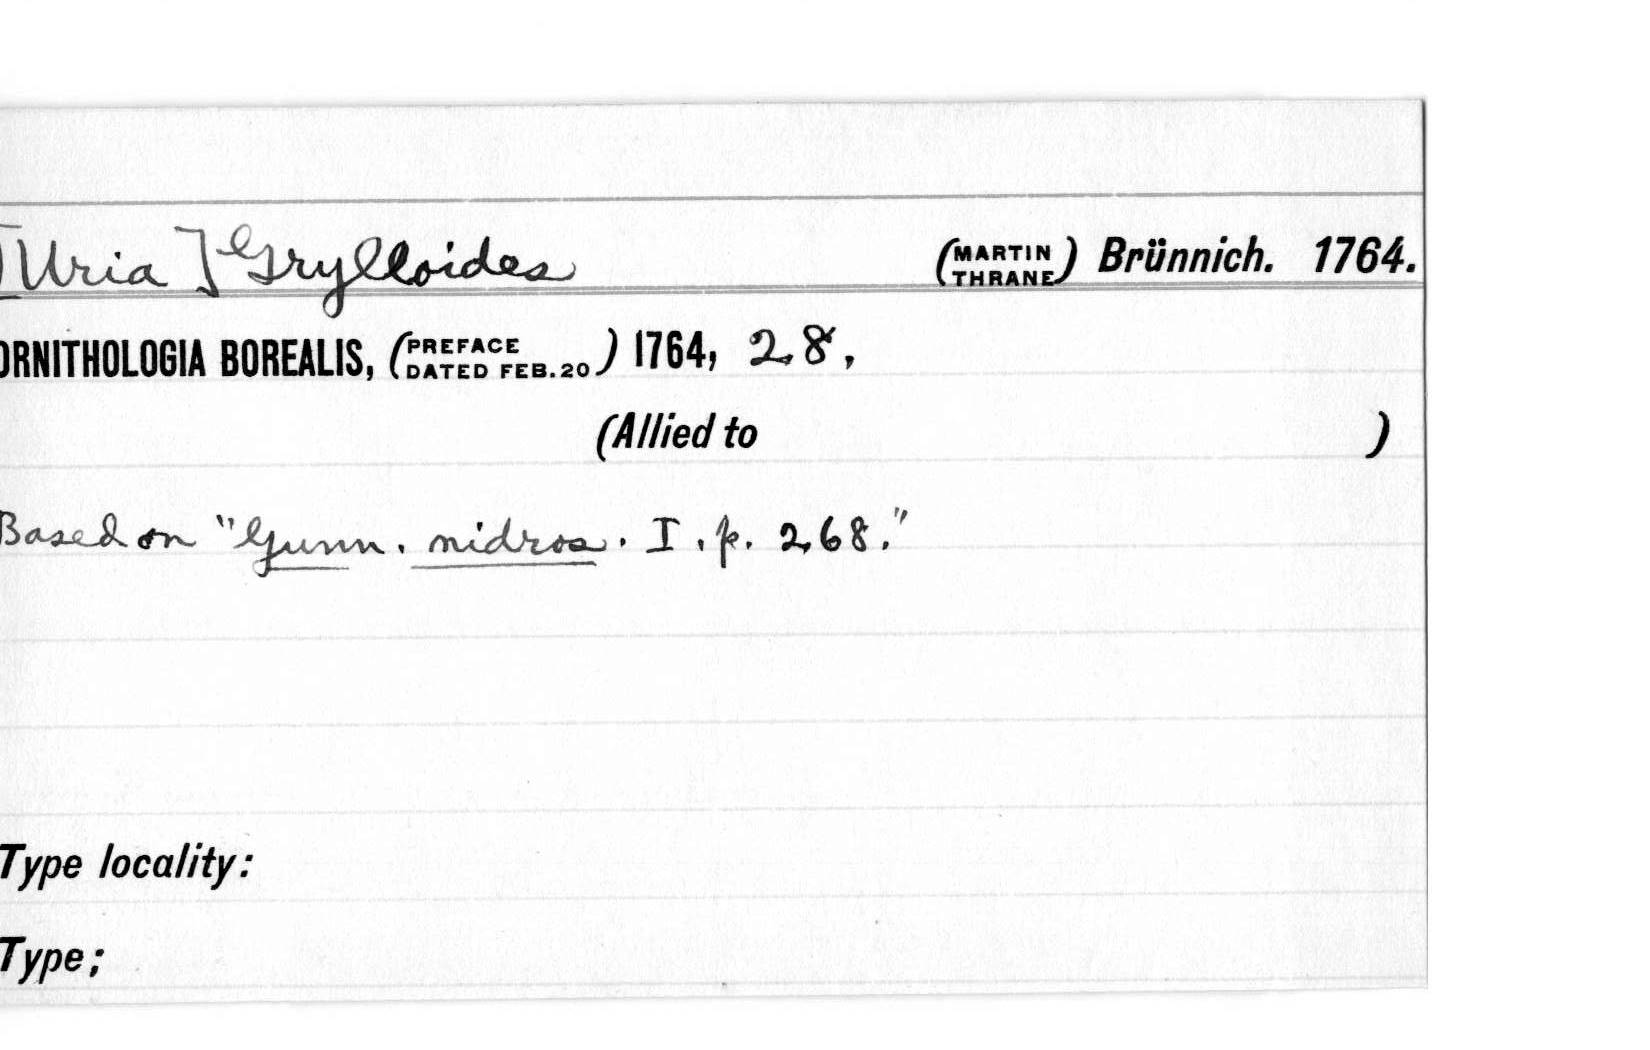 [Uria] Grylloides (MARTIN THRANE) Brünnich. 1764.
ORNITHOLOGIA BOREALIS, (PREFACE DATED FEB. 20) 1764, 28,
(Allied to )
Based on "Gunn. nidros. I. p. 268."
Type locality:
Type;